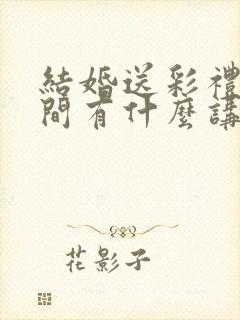 結婚送彩禮
間有什麼講
花影子